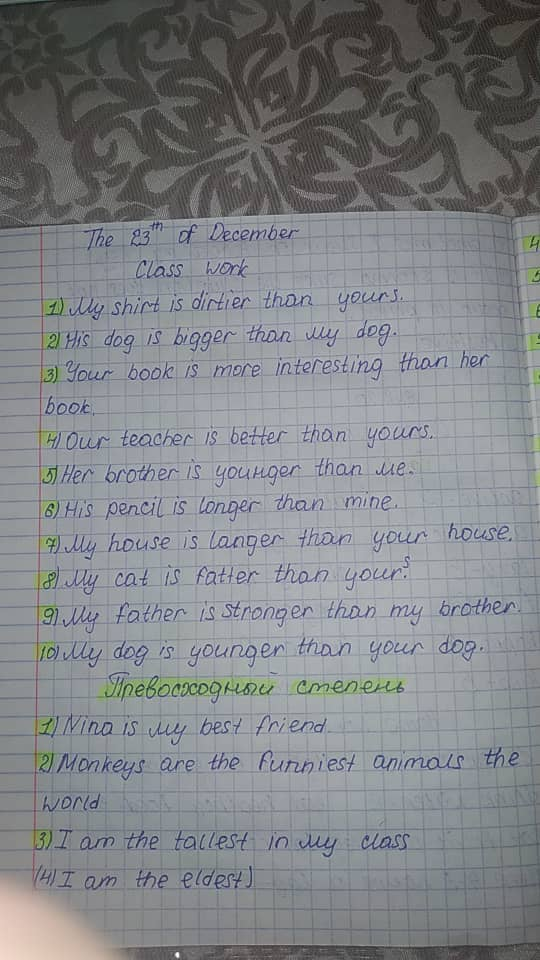 The 23th of December
Class work
1) My shirt is dirtier than yours.
2) His dog is bigger than my dog.
3) Your book is more interesting than her
book.
4) Our teacher is better than yours.
5) Her brother is younger than me.
6) His pencil is longer than mine.
7) My house is langer than your house.
8) My cat is fatter than yours.
9) My father is stronger than my brother.
10) My dog is younger than your dog.
Превосходный степень
1) Nina is my best friend.
2) Monkeys are the funniest animals the
world
3) I am the tallest in my class
(4) I am the eldest)